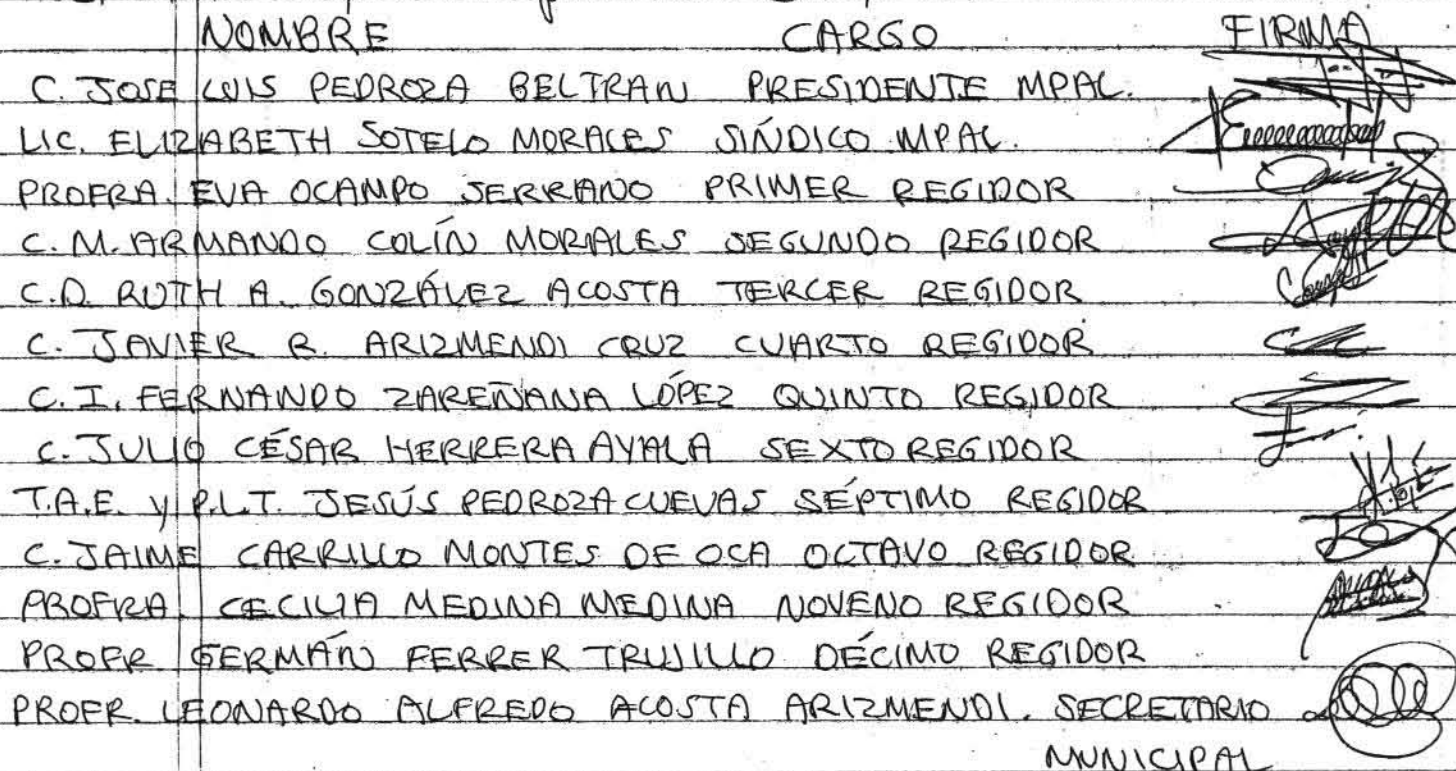 NOMBRE CARGO FIRMA
C. JOSE LUIS PEDROZA BELTRAN PRESIDENTE MPAL.
LIC. ELIZABETH SOTELO MORALES SÍNDICO MPAL.
PROFRA. EVA OCAMPO SERRANO PRIMER REGIDOR
C. M. ARMANDO COLÍN MORALES SEGUNDO REGIDOR
C.D. RUTH A. GONZÁLEZ ACOSTA TERCER REGIDOR
C. JAVIER R. ARIZMENDI CRUZ CUARTO REGIDOR
C. I. FERNANDO ZAREÑANA LÓPEZ QUINTO REGIDOR
C. JULIO CÉSAR HERRERA AYALA SEXTO REGIDOR
T.A.E. Y P.L.T. JESÚS PEDROZA CUEVAS SÉPTIMO REGIDOR
C. JAIME CARRILLO MONTES DE OCA OCTAVO REGIDOR
PROFRA. CECILIA MEDINA MEDINA NOVENO REGIDOR
PROFR GERMÁN FERRER TRUJILLO DÉCIMO REGIDOR
PROFR. LEONARDO ALFREDO ACOSTA ARIZMENDI. SECRETARIO
MUNICIPAL